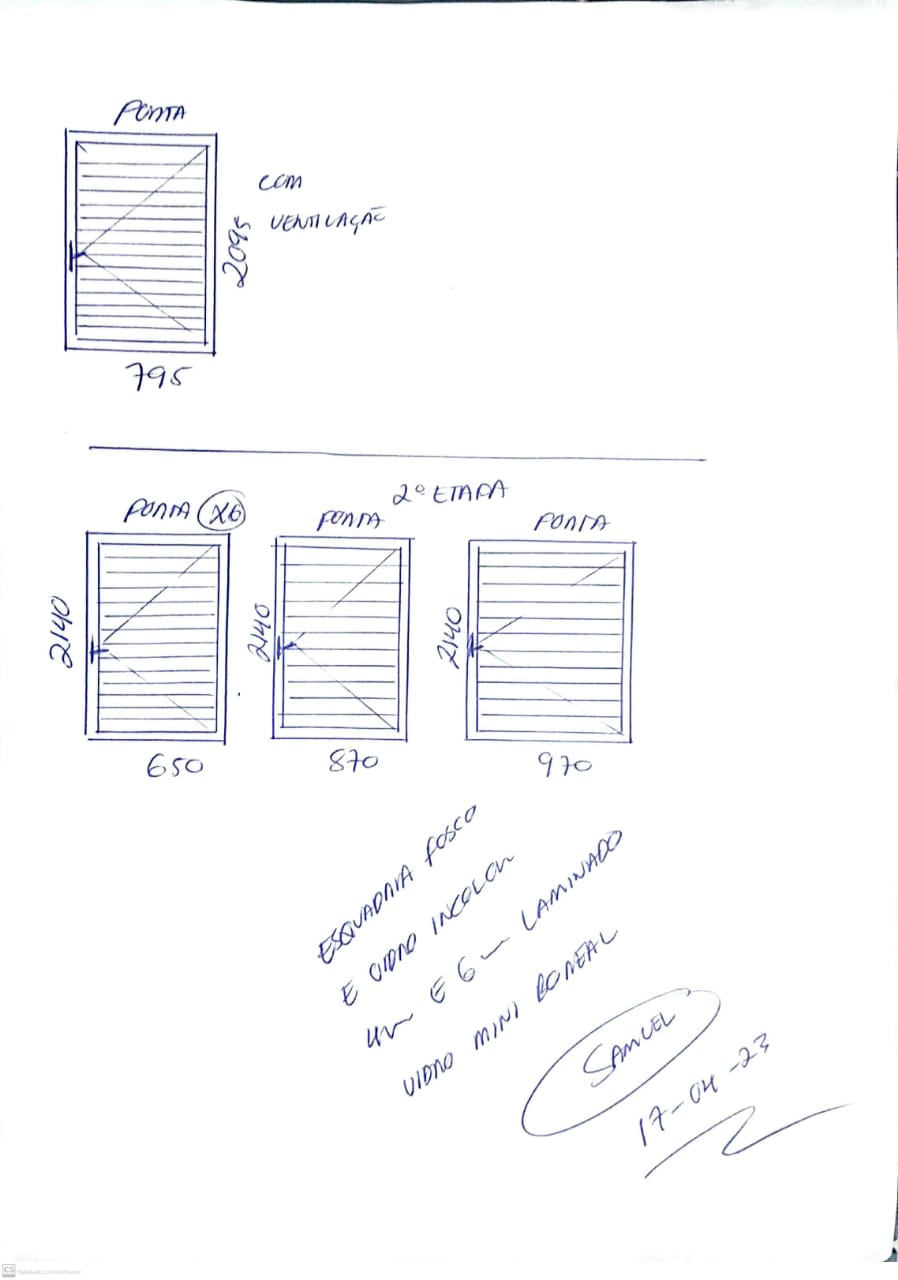 PORTA
COM
VENTILAÇÃO
2095
795
2º ETAPA
PORTA X6
PORTA
PORTA
2140
2140
2140
650
870
970
ESQUADRIA FOSCO
E VIDRO INCOLOR
4m E 6m LAMINADO
VIDRO MINI BOREAL
SAMUEL
17-04-23
CS